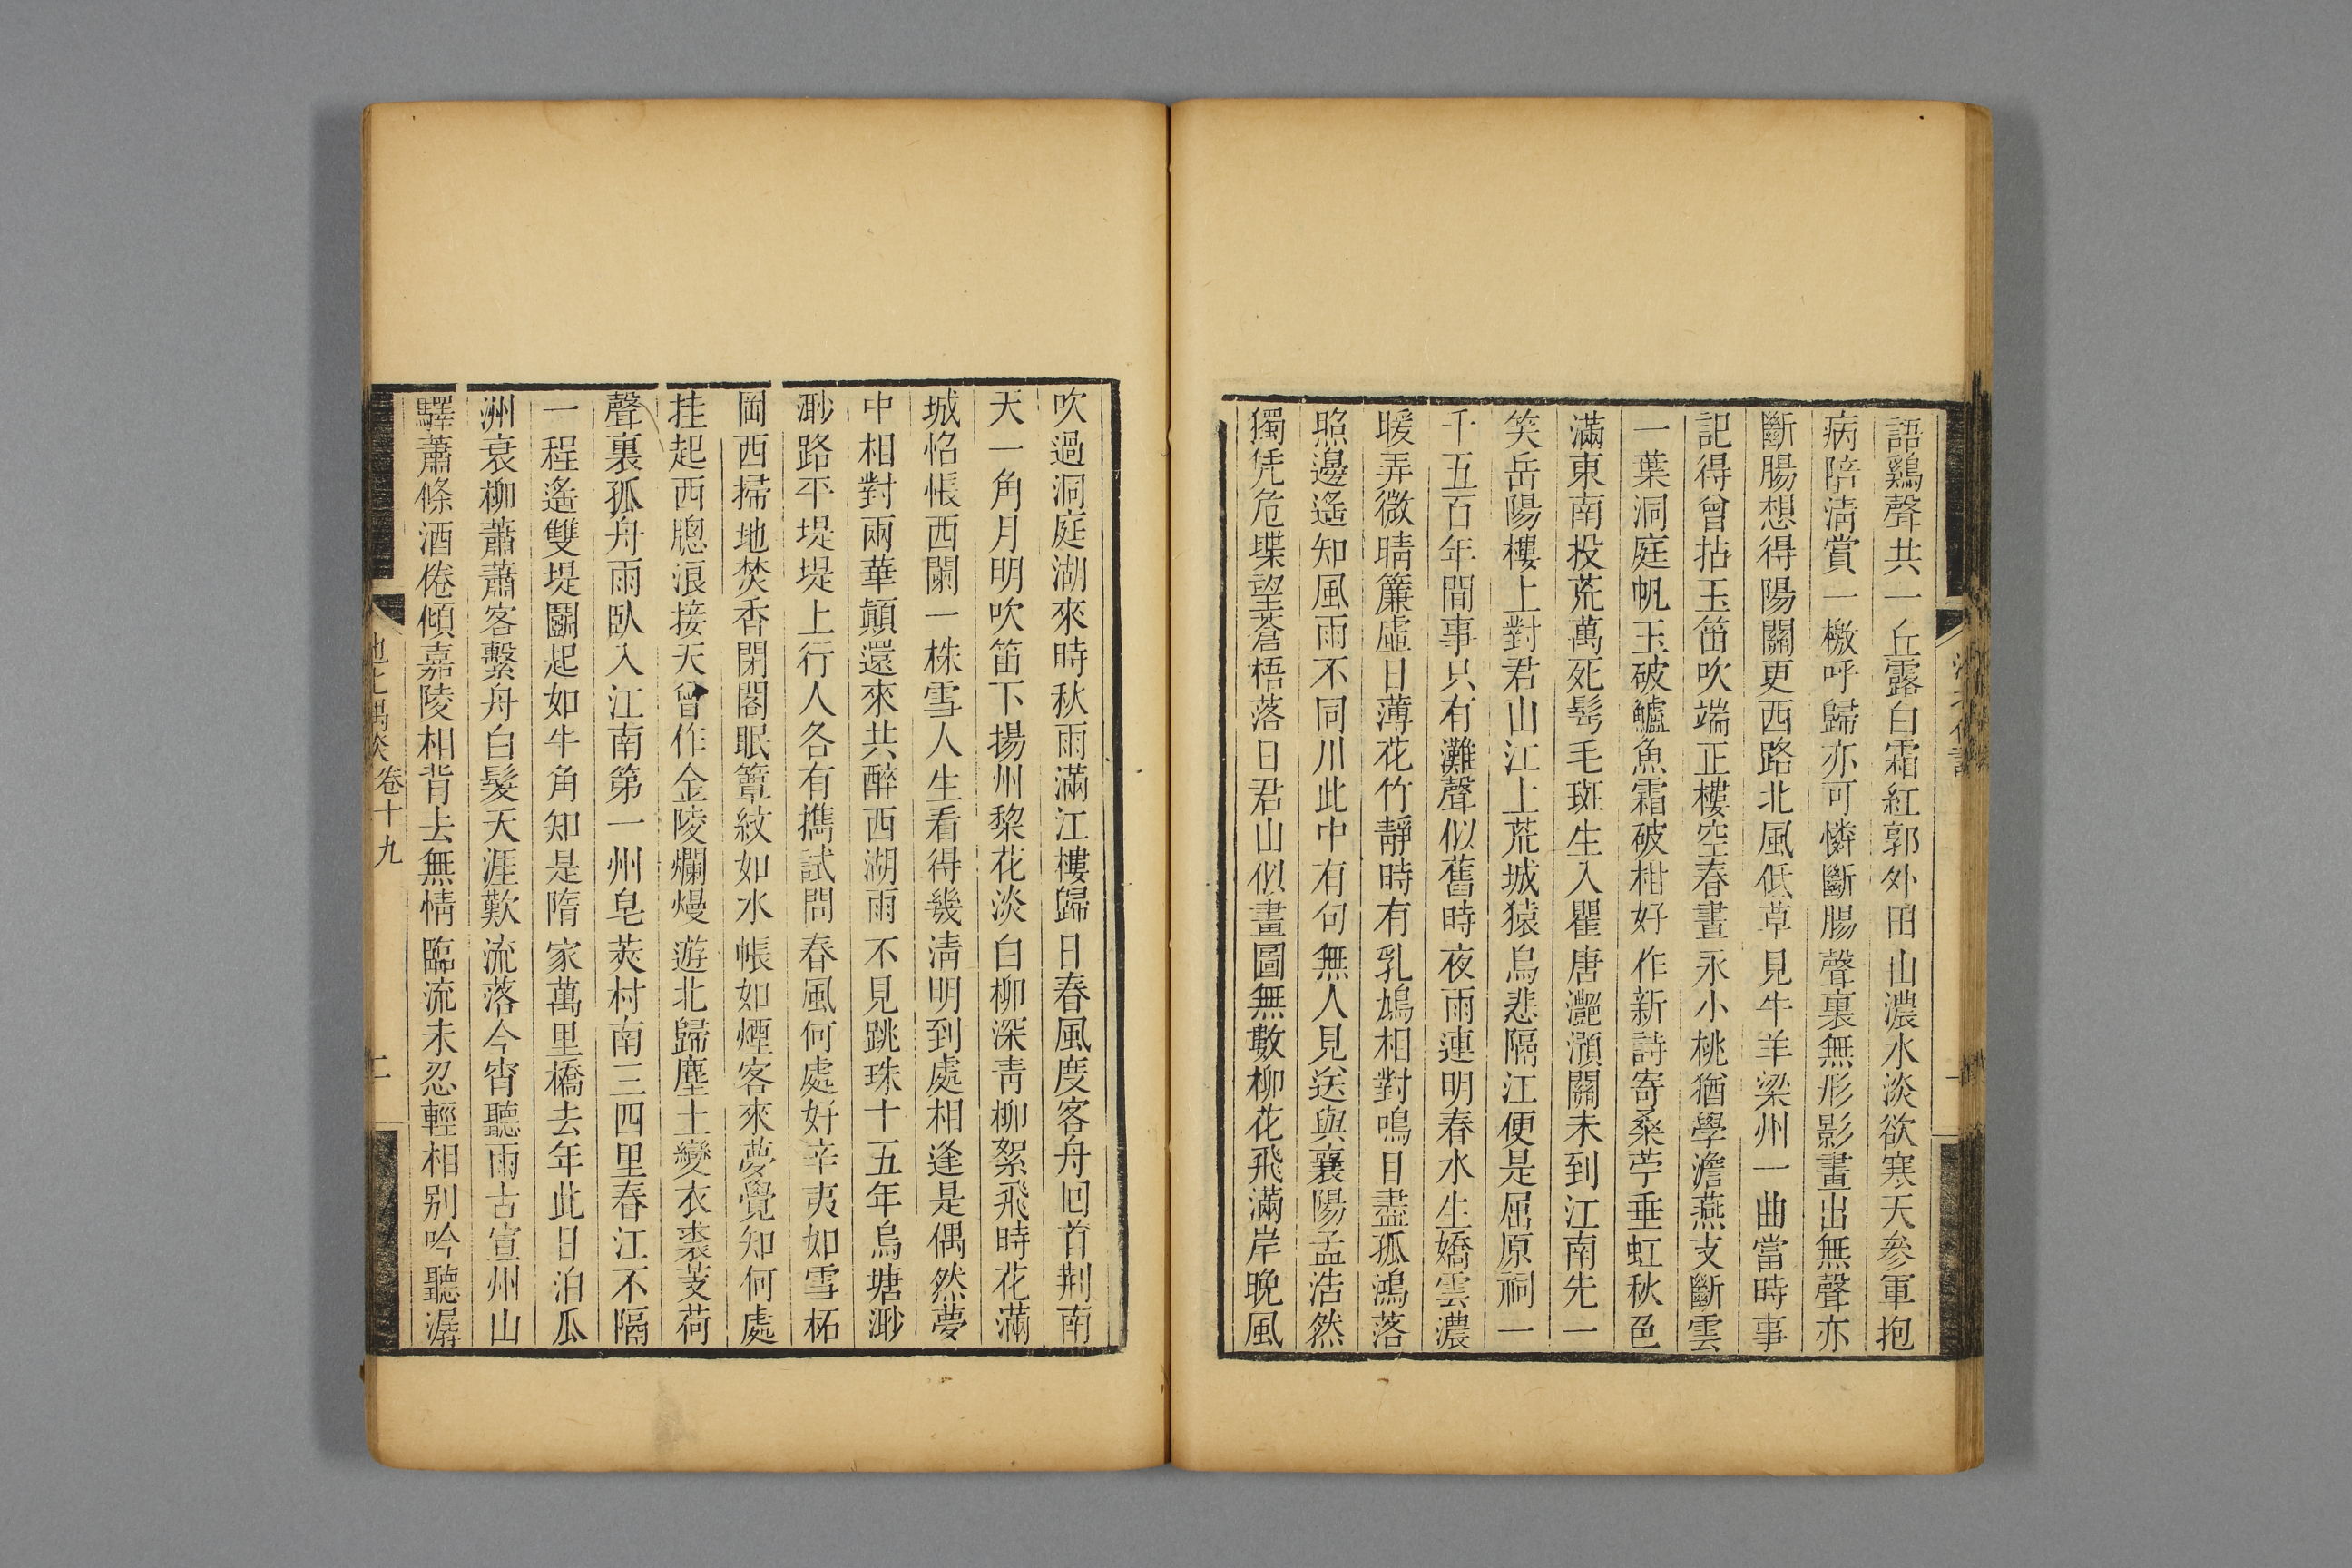 語鷄聲共一丘露白霜紅郭外田山濃水淡欲寒天參軍抱
病陪淸賞一檄呼歸亦可憐斷腸聲裏無形影畫出無聲亦
斷腸想得陽關更西路北風低草見牛羊梁州一曲當時事
記得曾拈玉笛吹端正樓空春晝永小桃猶學澹燕支斷雲
一葉洞庭帆玉破鱸魚霜破柑好作新詩寄桑苧垂虹秋色
滿東南投荒萬死鬂毛斑生入瞿唐灔澦關未到江南先一
笑岳陽樓上對君山江上荒城猿鳥悲隔江便是屈原祠一
千五百年間事只有灘聲似舊時夜雨連明春水生嬌雲濃
暖弄微晴簾虛日薄花竹靜時有乳鳩相對鳴目盡孤鴻落
照邊遙知風雨不同川此中有句無人見送與襄陽孟浩然
獨凭危堞望蒼梧落日君山似畫圖無數柳花飛滿岸晚風
吹過洞庭湖來時秋雨滿江樓歸日春風度客舟回首荆南
天一角月明吹笛下揚州棃花淡白柳深靑柳絮飛時花滿
城怊悵西闌一株雪人生看得幾淸明到處相逢是偶然夢
中相對兩華顚還來共醉西湖雨不見跳珠十五年烏塘渺
渺路平堤堤上行人各有攜試問春風何處好辛夷如雪柘
岡西掃地焚香閉閣眠簟紋如水帳如煙客來夢覺知何處
挂起西牎浪接天曾作金陵爛熳遊北歸塵土變衣裘芰荷
聲裏孤舟雨臥入江南第一州皂莢村南三四里春江不隔
一程遙雙堤鬭起如牛角知是隋家萬里橋去年此日泊瓜
洲衰柳蕭蕭客繫舟白髮天涯歎流落今宵聽雨古宣州山
驛蕭條酒倦傾嘉陵相背去無情臨流未忍輕相别吟聽潺
池北偶談 卷十九 二